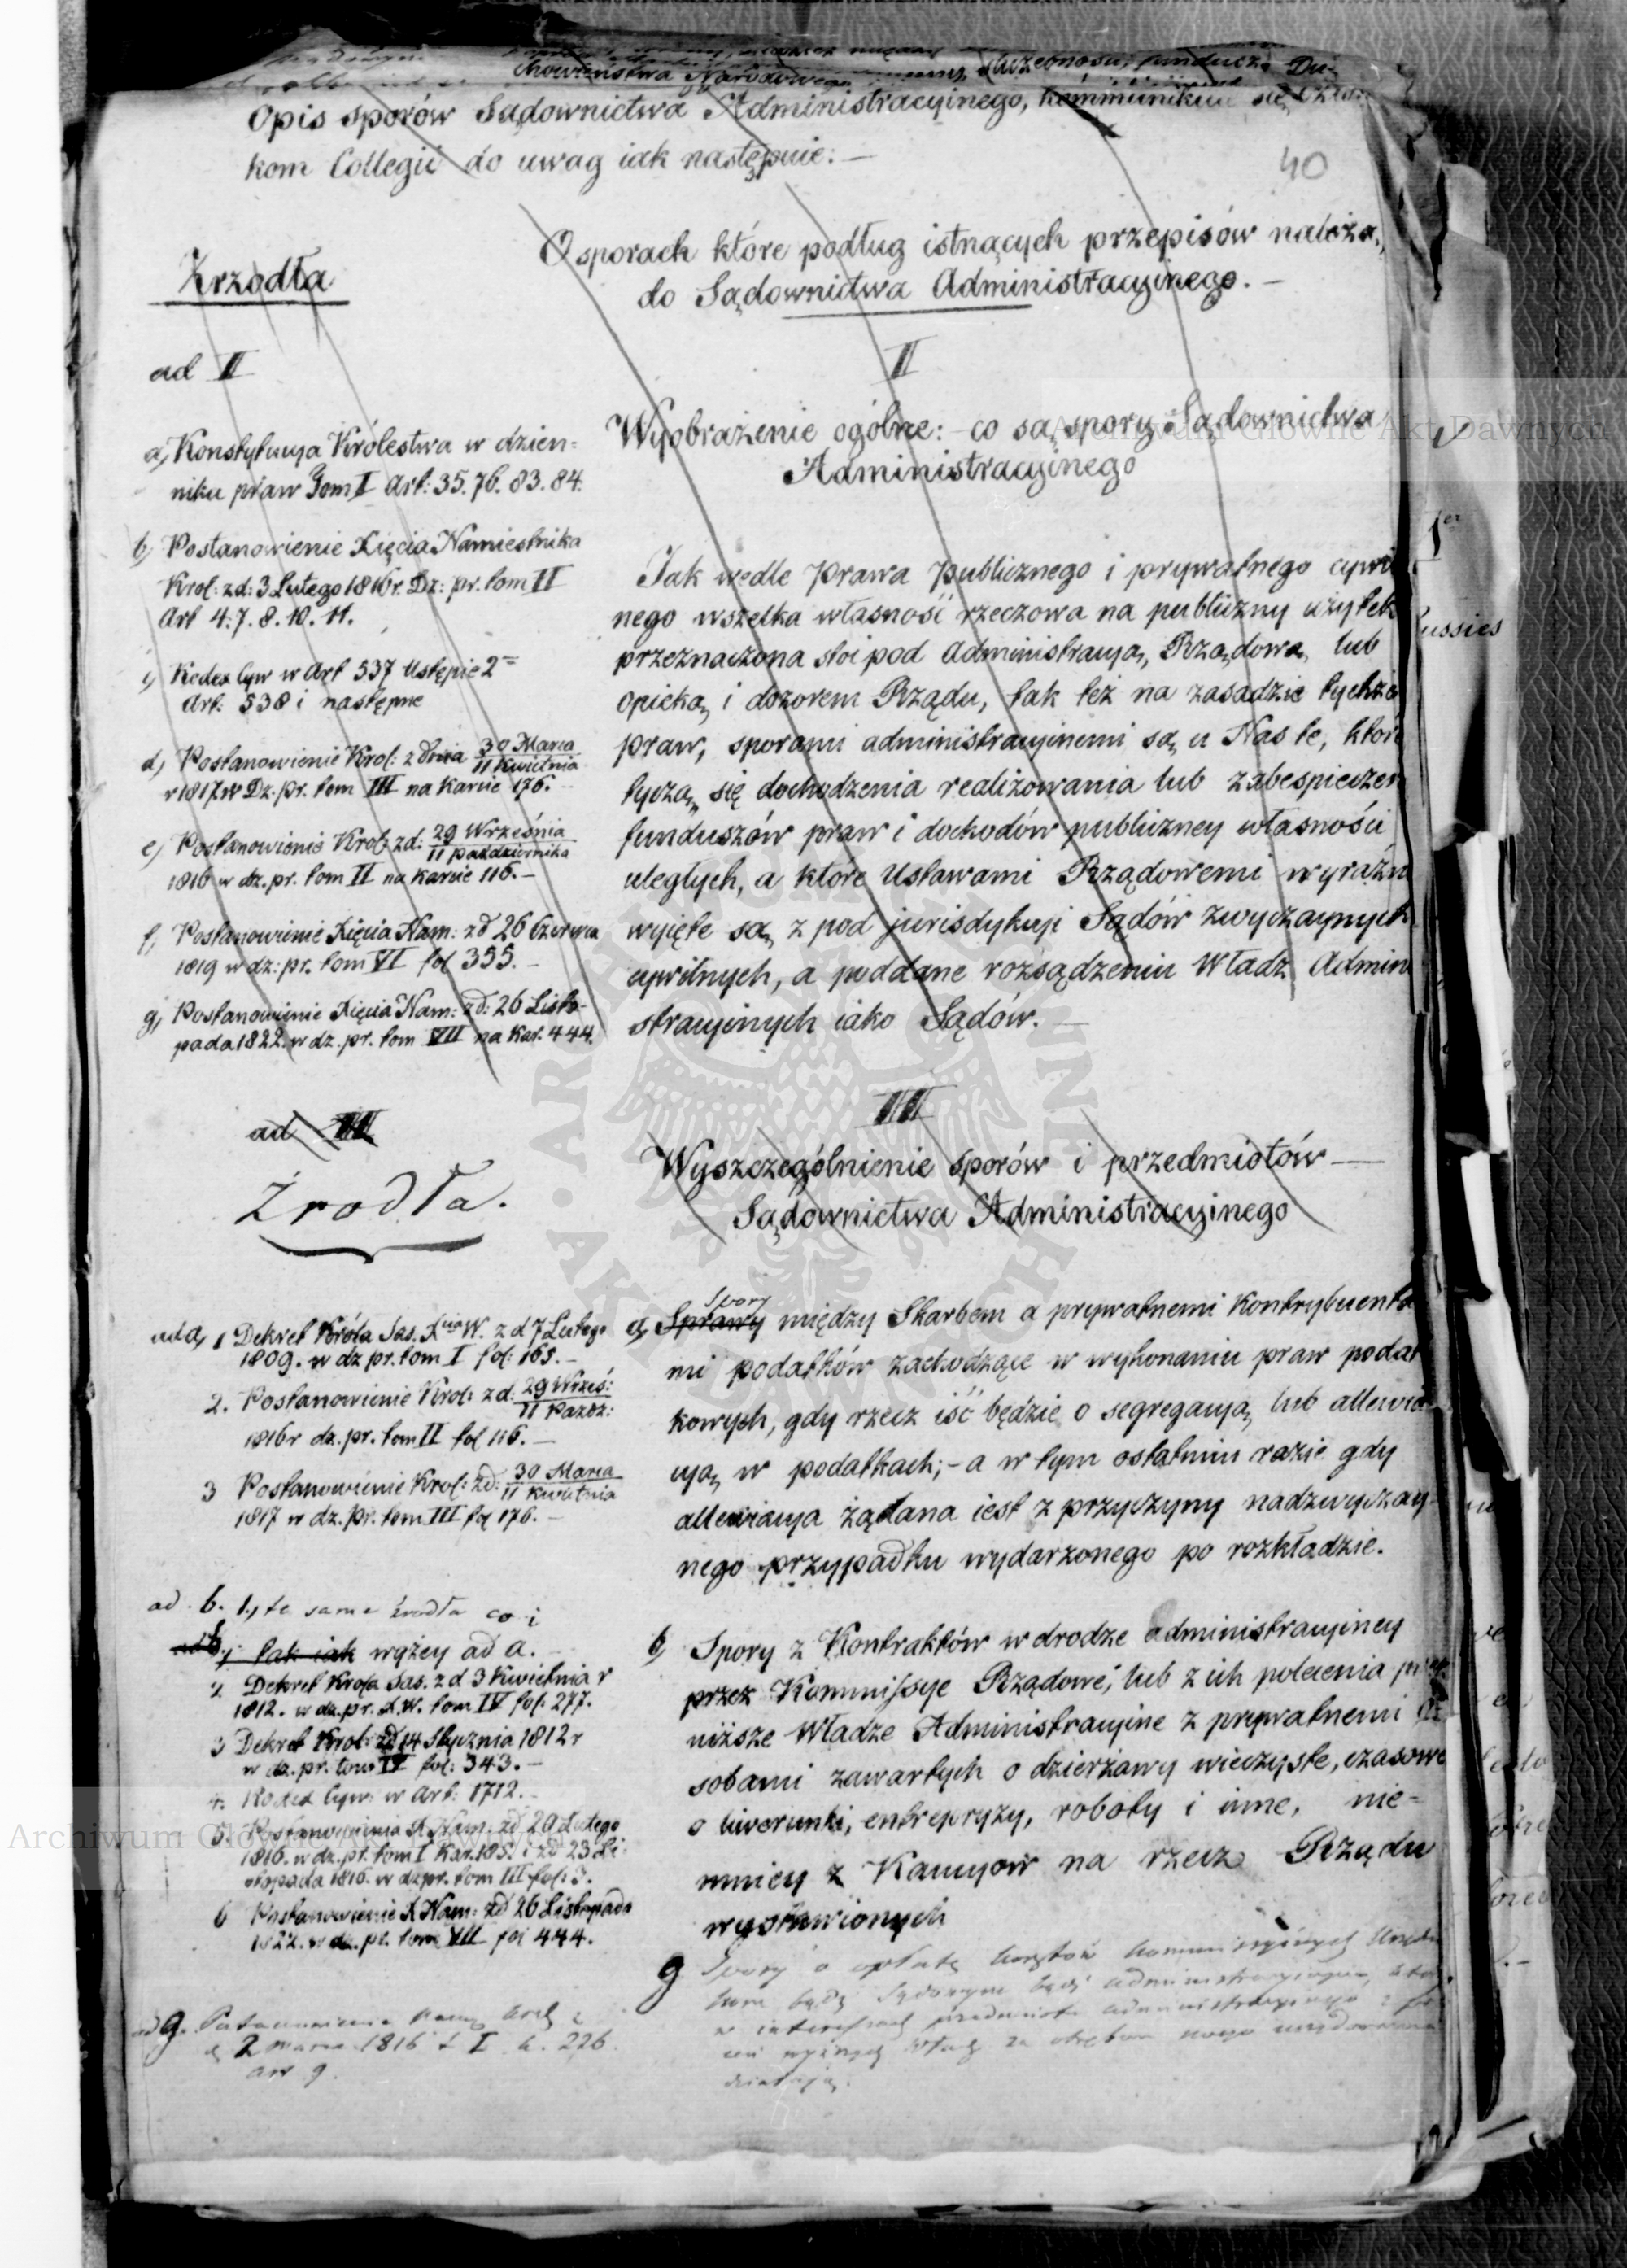 Chowieństwa Narodowego
Opis sporów Sądownictwa Administracyinego, kommunikuie się Człon
kom Collegii do uwag iak następuie: —
40
Zrzodła
O sporach które podług istnących przepisów należą,
do Sądownictwa Administracyinego. —
ad II
a) Konstytucya Królestwa w dzien=
niku praw Tom I Art: 35. 76. 83. 84.
b) Postanowienie Xięcia Namiestnika
Krol: z d: 3 Lutego 1816 r. Dz: pr. tom II
Art 4. 7. 8. 10. 11.
c) Kodex Cyw w Art 537 Ustępie 2=
Art. 538 i następne
d) Postanowienie Krol: z dnia 30 Marca / 11 Kwietnia
r 1817 w Dz. pr. tom III na karcie 176.
e) Postanowienie Krol: z d: 29 Września / 11 października
1816 w dz. pr. tom II na karcie 116. —
f) Postanowienie Xięcia Nam: z d 26 Czerwca
1819 w dz: pr. tom VI fol 355. —
g) Postanowienie Xięcia Nam: z d: 26 Listo-
pada 1822. w dz. pr. tom VII na kar. 444.
II
Wyobrażenie ogólne: co są spory Sądownictwa
Administracyinego
Jak wedle Prawa publicznego i prywatnego cywil
nego wszelka własność rzeczowa na publiczny użytek
przeznaczona stoi pod Administracyą, Rządową, lub
opieką, i dozorem Rządu, tak też na zasadzie tychże
praw, sporami administracyinemi są u Nas te, któr
tyczą, się dochodzenia realizowania lub zabespieczen
funduszów praw i dochodów publiczney własności
uległych, a które Ustawami Rządowemi wyraźn
wyięte są, z pod jurisdykcyi Sądów zwyczaynych
cywilnych, a poddane rozsądzeniu Władz Admin
stracyinych iako Sądów. —
ad III
Żrodła.
III
Wyszczególnienie sporów i przedmiotów —
Sądownictwa Administracyinego
ad a) 1 Dekret Króla Sas. Xcia W. z d 7 Lutego
1809. w dz pr. tom I fol: 165. —
2. Postanowienie Krol: z d: 29 Wrześ: / 11 Paźdz:
1816 r dz. pr. tom II fol 116. —
3 Postanowienie Krol: z d: 30 Marca / 11 Kwietnia
1817 w dz. pr. tom III fol 176. —
Spory
a) Sprawy między Skarbem a prywatnemi Kontrybuenta
mi podatków zachodzące w wykonaniu praw podat
kowych, gdy rzecz iść będzie o segregacyą, lub allewia
cyą, w podatkach; – a w tym ostatnim razie gdy
allewiacya żądana iest z przyczyny nadzwyczay-
nego przypadku wydarzonego po rozkładzie.
ad b. 1., te same źrodła co i
ad b) tak iak wyżey ad a. —
2 Dekret Króla Sas. z d 3 Kwietnia r
1812. w dz. pr. X. W. tom IV fol. 277.
3 Dekret Krol: z d 14 Stycznia 1812 r
w dz. pr. tom IV fol: 343. —
4. Kodex Cyw: w Art: 1712. —
5. Postanowienia X Nam. z d 20 Lutego
1816. w dz. pr. tom I Kar. 185. i z d 23 Li-
stopada 1816. w dz pr. tom III fol: 3.
6 Postanowienie X Nam: z d 26 Listopada
1822. w dz. pr. tom VII fol 444.
b) Spory z Kontraktów w drodze administracyiney
przez Kommissye Rządowe, lub z ich polecenia przez
niższe Władze Administracyine z prywatnemi O
sobami zawartych o dzierżawy wieczyste, czasowe
o liwerunki, entrepryzy, roboty i inne, nie=
mniey z Kaucyow na rzecz Rządu
wystawionych
g Spory o opłatę kosztów
bądź Sądowym bądź administracyinym
w interessach
działają.
ad g. Postanowienie
2 Marca 1816 t I k. 226
art 9.
Archiwum Główne Akt Dawnych
Archiwum Główne Akt Dawnych
ARCHIWUM GŁÓWNE AKT DAWNYCH